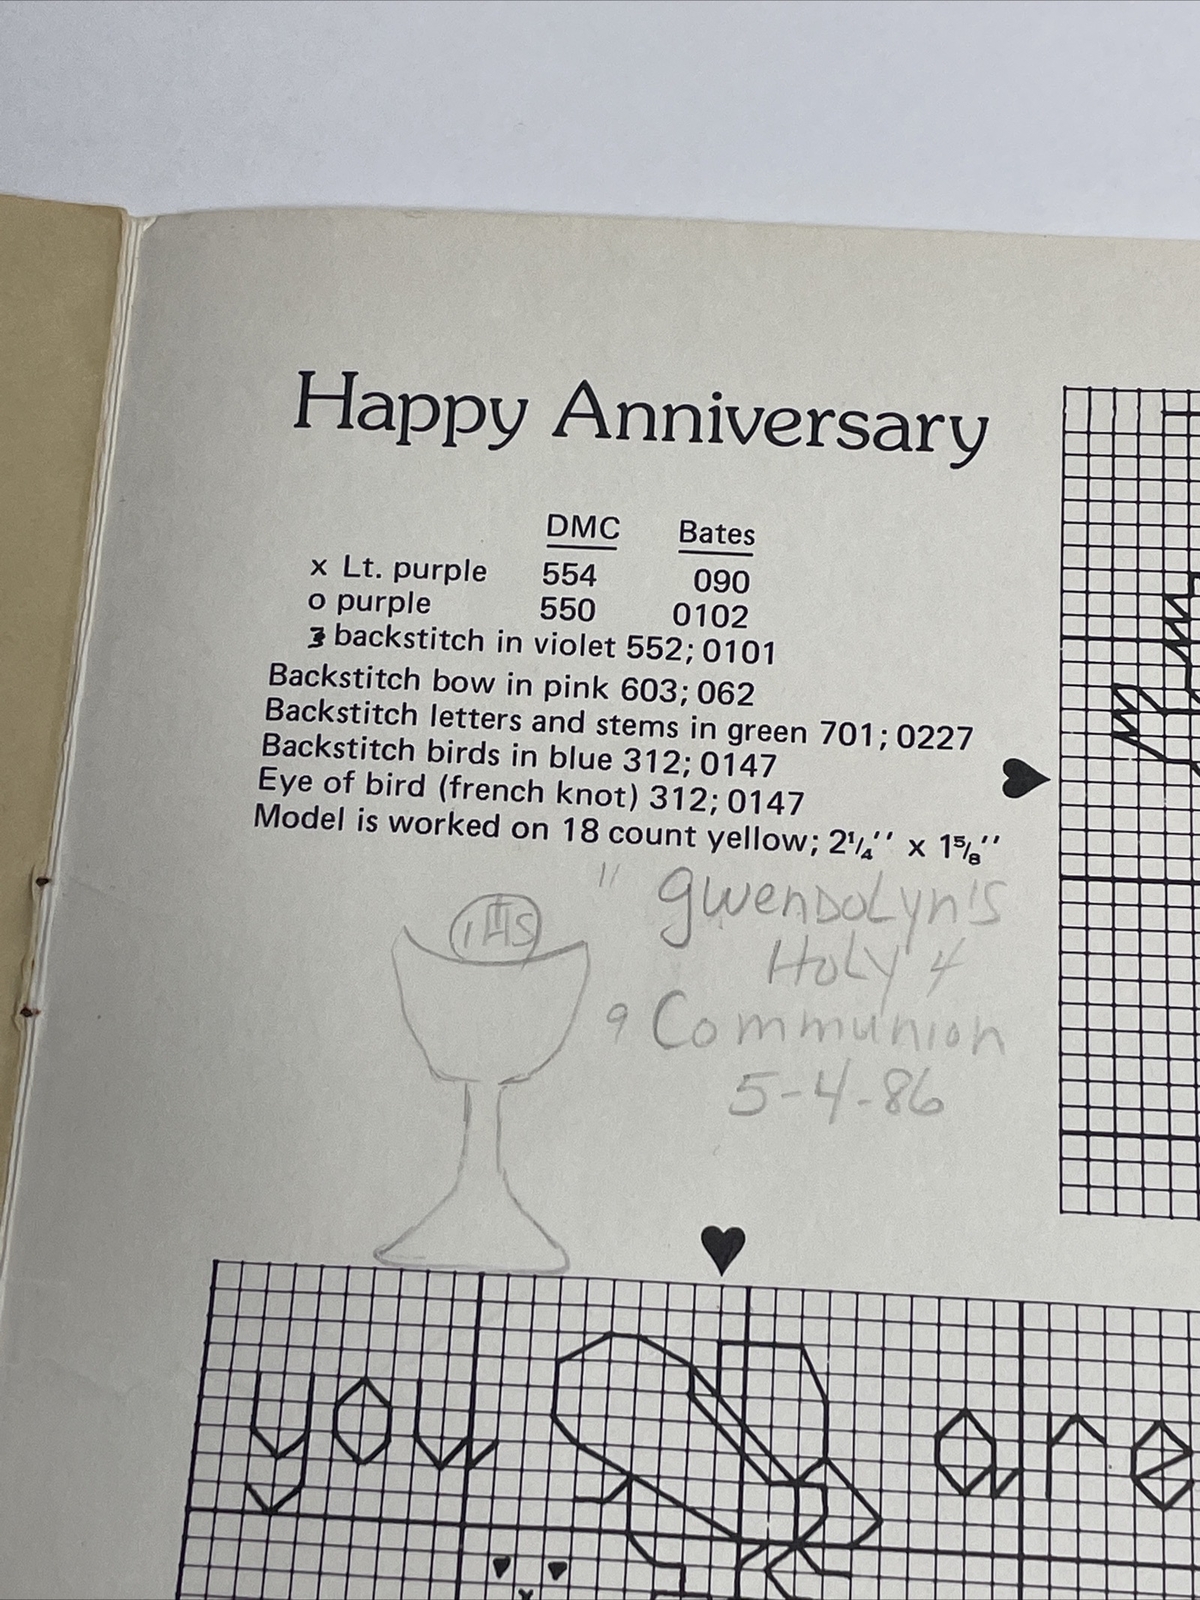 Happy Anniversary
DMC Bates
x Lt. purple 554 090
o purple 550 0102
3 backstitch in violet 552; 0101
Backstitch bow in pink 603; 062
Backstitch letters and stems in green 701; 0227
Backstitch birds in blue 312; 0147
Eye of bird (french knot) 312; 0147
Model is worked on 18 count yellow; 2¼'' x 1⅝''
IHS
" gwenDoLyn's
HoLY 4
9 Communion
5-4-86
you are